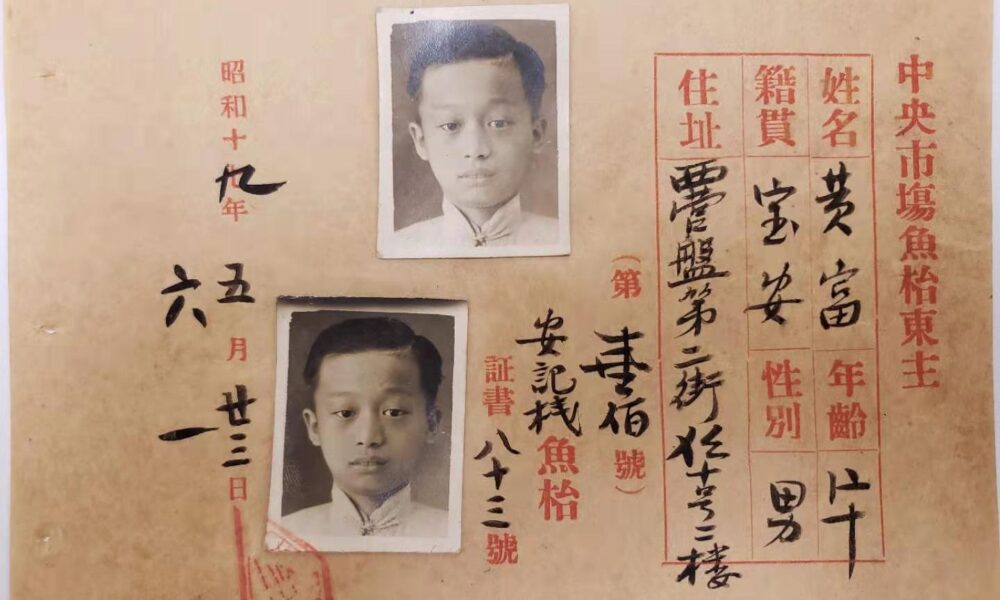 中央市塲魚枱東主
姓名 黄富 年齡
籍貫 宝安 性別 男
住址 西營盤第二街十号二楼
（第壹伯號）
安記栈魚枱
証書八十三號
昭和十九年五月廿三日
六 一